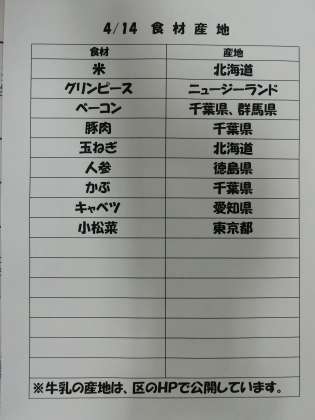 4/14 食材産地
食材 産地
米 北海道
グリンピース ニュージーランド
ベーコン 千葉県、群馬県
豚肉 千葉県
玉ねぎ 北海道
人参 徳島県
かぶ 千葉県
キャベツ 愛知県
小松菜 東京都
※牛乳の産地は、区のHPで公開しています。